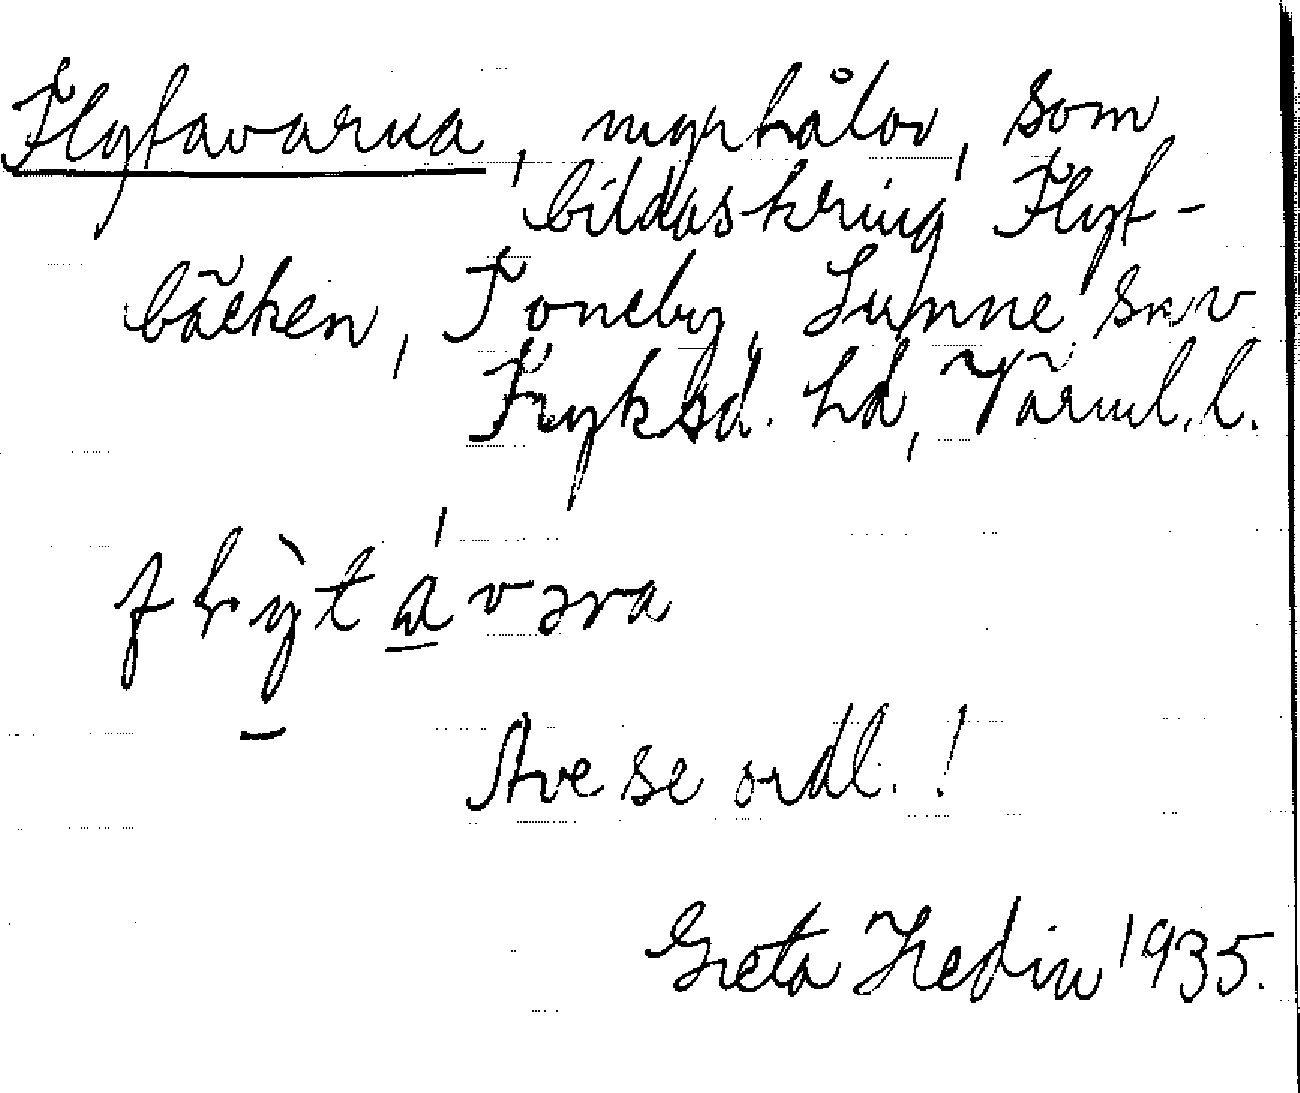 Flytavarna, myrhålor, som
bildas kring Flyt-
bäcken, Toneby, Sunne skn
Fryksd. hd, Värml. l.
flỳtávəra
Ave se ordl.!
Greta Hedin 1935.